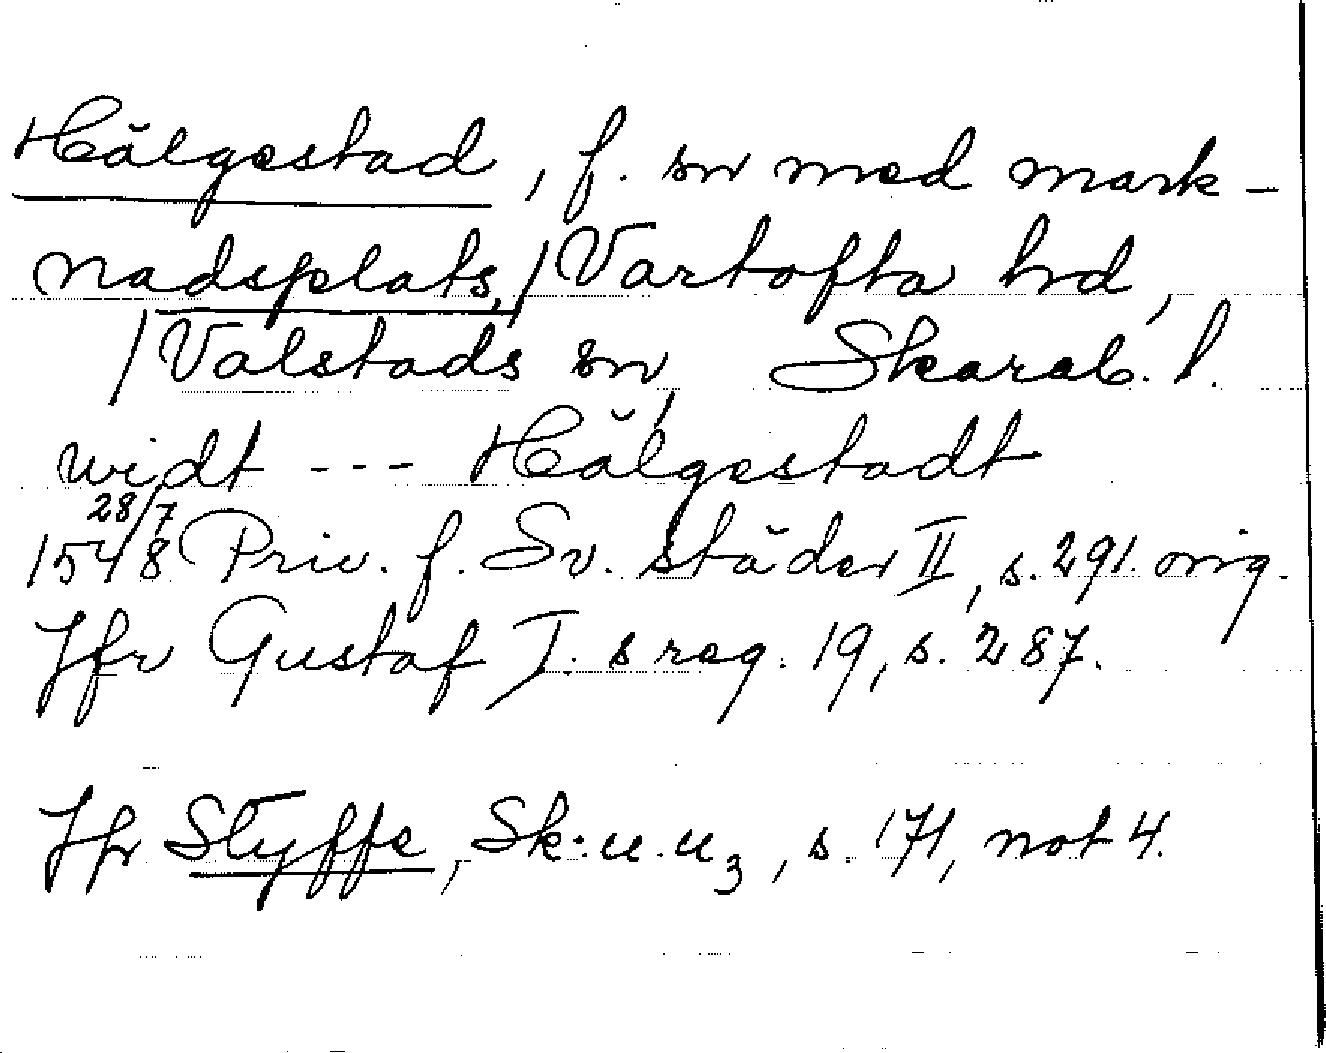 Hälgestad, f. sn med mark-
nadsplats, / Vartofta hd,
/ Valstads sn, Skarab. l.
widt --- Hälgestadt
28/7
1548 Priv. f. Sv. städer II, s. 291. orig.
Jfr Gustaf I. s reg. 19, s. 287.
Jfr Styffe, Sk: u. u3, s. 171, not 4.